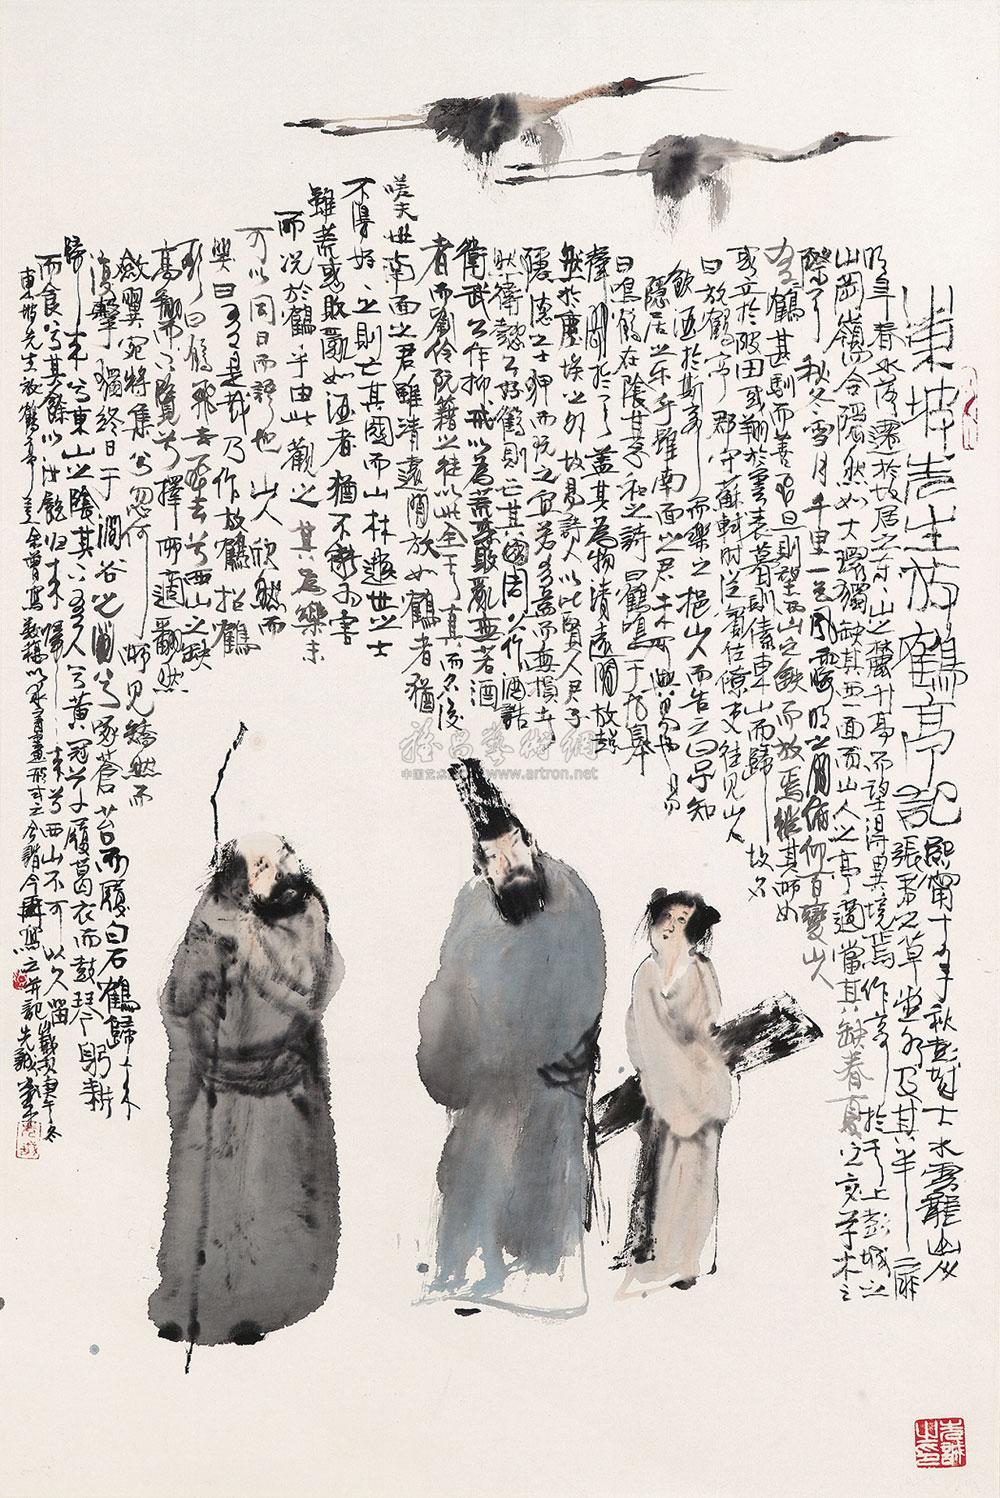 東坡先生放鶴亭記 熙甯十年秋彭城大水雲龍山人
張君之草堂水及其半扉
明年春水落遷於故居之東東山之麓升高而望得異境焉作亭於其上彭城之
山岡嶺合隱然如大環獨缺其西一面而山人之亭適當其缺春夏之交草木
際天秋冬雪月千里一色風雨晦明之間俯仰百變山人
有二鶴甚馴而善飛旦則望西山之缺而放焉縱其所如
或立於陂田或翔於雲表暮則傃東山而歸故名
曰放鶴亭郡守蘇軾時從賓佐僚吏往見山人
飲酒於斯亭而樂之挹山人而告之曰子知
隱居之樂乎雖南面之君未可與易也易
曰鳴鶴在陰其子和之詩曰鶴鳴于九皋
聲聞於天蓋其為物清遠閒放超
然於塵埃之外故易詩人以比賢人君子
隱德之士狎而玩之宜若有益而無損者
然衛懿公好鶴則亡其國周公作酒誥
衛武公作抑戒以為荒惑敗亂無若酒
者而劉伶阮籍之徒以此全其真而名後
嗟夫南面之君雖清遠閒放如鶴者猶
不得好好之則亡其國而山林遯世之士
雖荒惑敗亂如酒者猶不能為害
而況於鶴乎由此觀之其為樂未
可以同日而語也山人欣然而
笑曰有是哉乃作放鶴招鶴
歌曰鶴飛去兮西山之缺
高翔而下覽兮擇所適翻然
斂翼宛將集兮忽何所見矯然而
復擊獨終日于澗谷之間兮啄蒼苔而履白石鶴歸來
歸來兮東山之陰其下有人兮黃冠草履葛衣而鼓琴躬耕
而食兮其餘以汝飽歸來歸來兮西山不可以久留
東坡先生放鶴亭
中国艺术
www.artron.net